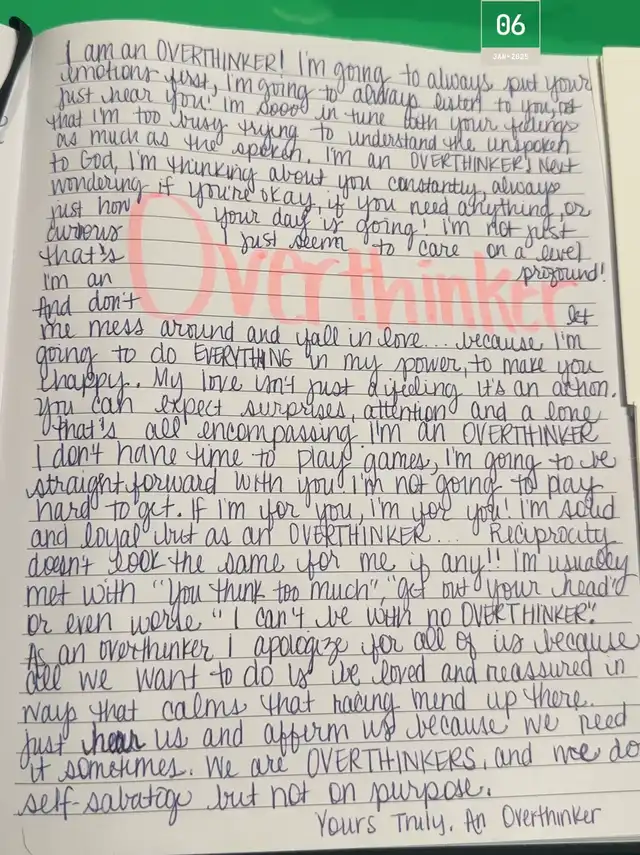 06
JAN-2025
I am an OVERTHINKER! I'm going to always put your
emotions first, I'm going to always listen to you, not
just hear you! I'm soooo in tune with your feelings
that I'm too busy trying to understand the unspoken
as much as the spoken. I'm an OVERTHINKER! Next
to God, I'm thinking about you constantly, always
wondering if you're okay, if you need anything, or
just how your day is going! I'm not just
curious I just seem to care on a level
that's profound!
I'm an Overthinker
And don't let
me mess around and fall in love... because I'm
going to do EVERYTHING in my power, to make you
happy. My love isn't just a feeling it's an action.
You can expect surprises, attention and a love
that's all encompassing I'm an OVERTHINKER
I don't have time to play games, I'm going to be
straightforward with you! I'm not going to play
hard to get. If I'm for you, I'm for you! I'm solid
and loyal but as an OVERTHINKER... Reciprocity
doesn't look the same for me if any!! I'm usually
met with "You think too much", "get out your head"
or even worse "I can't be with no OVERTHINKER".
As an overthinker I apologize for all of us because
all we want to do is be loved and reassured in
ways that calms that racing mind up there.
Just hear us and affirm us because we need
it sometimes. We are OVERTHINKERS, and we do
self-sabatoge but not on purpose.
Yours Truly, An Overthinker